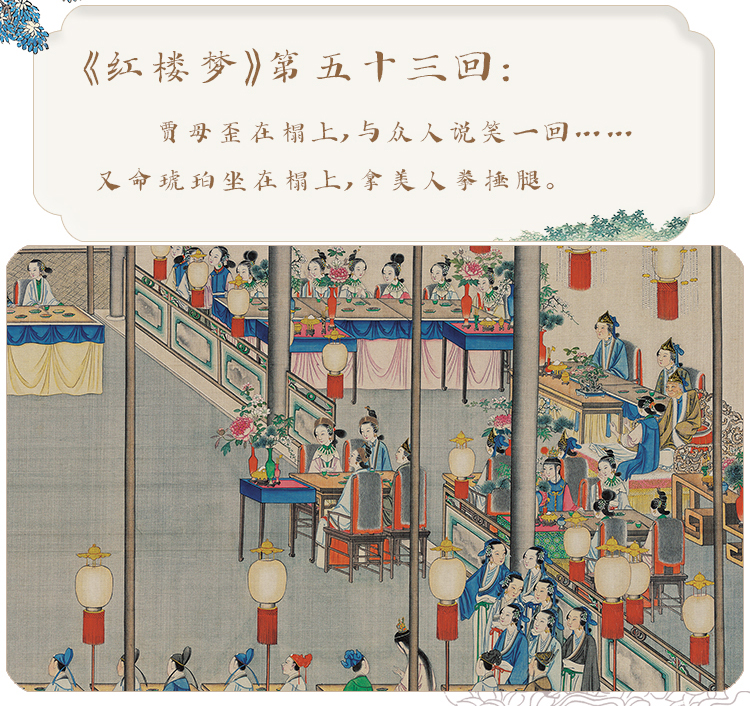 《红楼梦》第五十三回：
贾母歪在榻上,与众人说笑一回……
又命琥珀坐在榻上,拿美人拳捶腿。